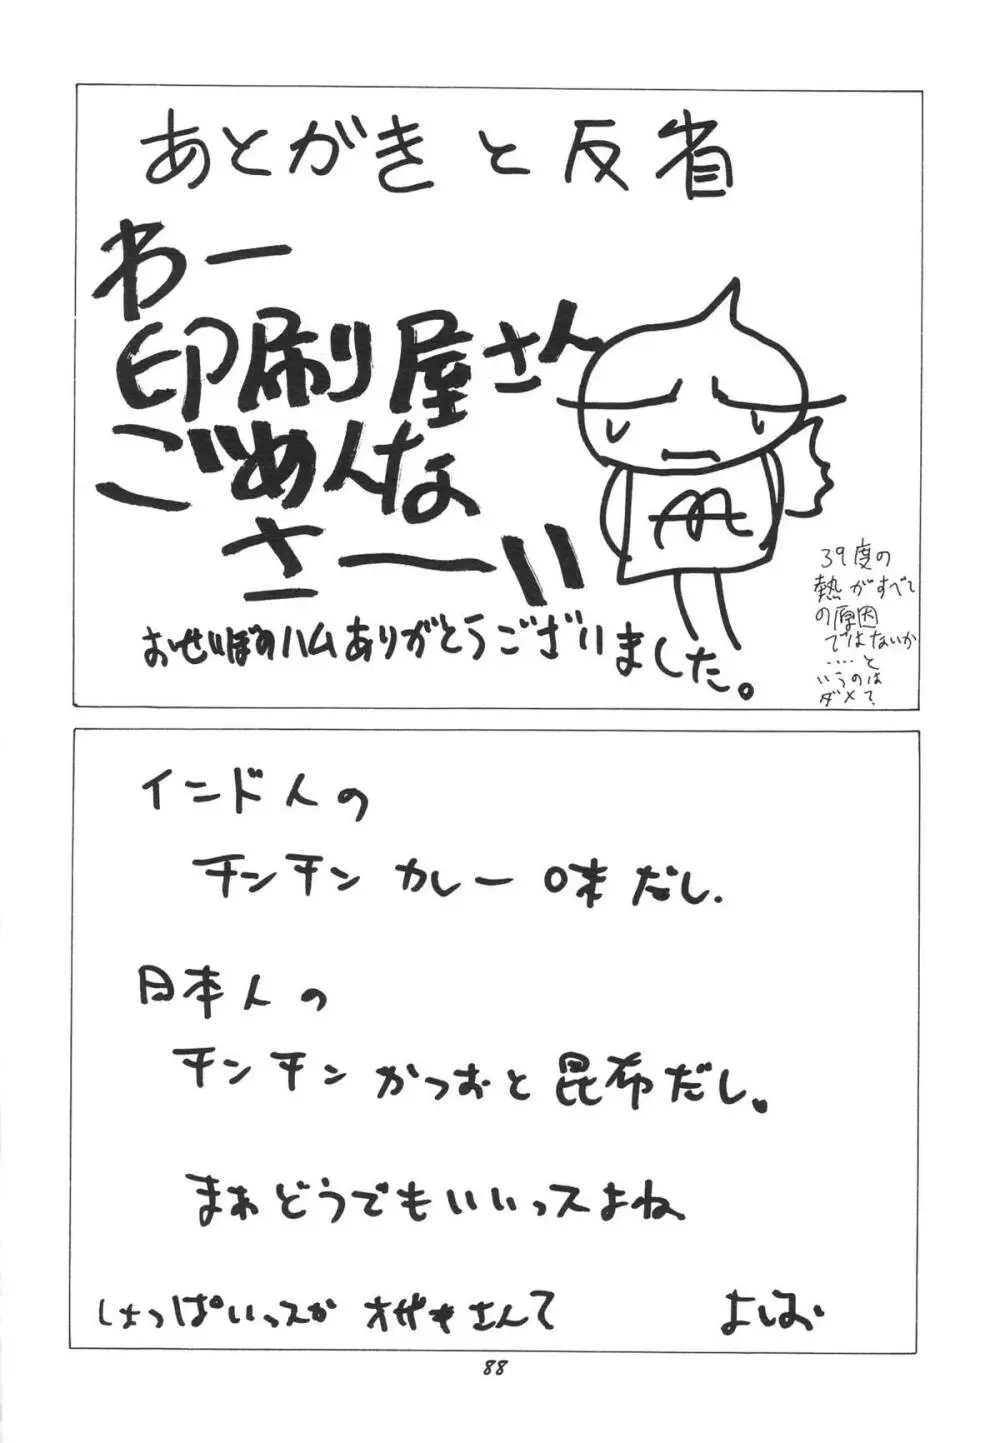 あとがきと反省
わー
印刷屋さん
ごめんな
さ〜い
おせいぼのハムありがとうございました。
39度の
熱がすべて
の原因
ではないか
‥‥と
いうのは
ダメ?
インド人の
チンチンカレー味だし.
日本人の
チンチンかつおと昆布だし。
まぁどうでもいいっスよね
しょっぱいっスか オザキさんて
よしお
88